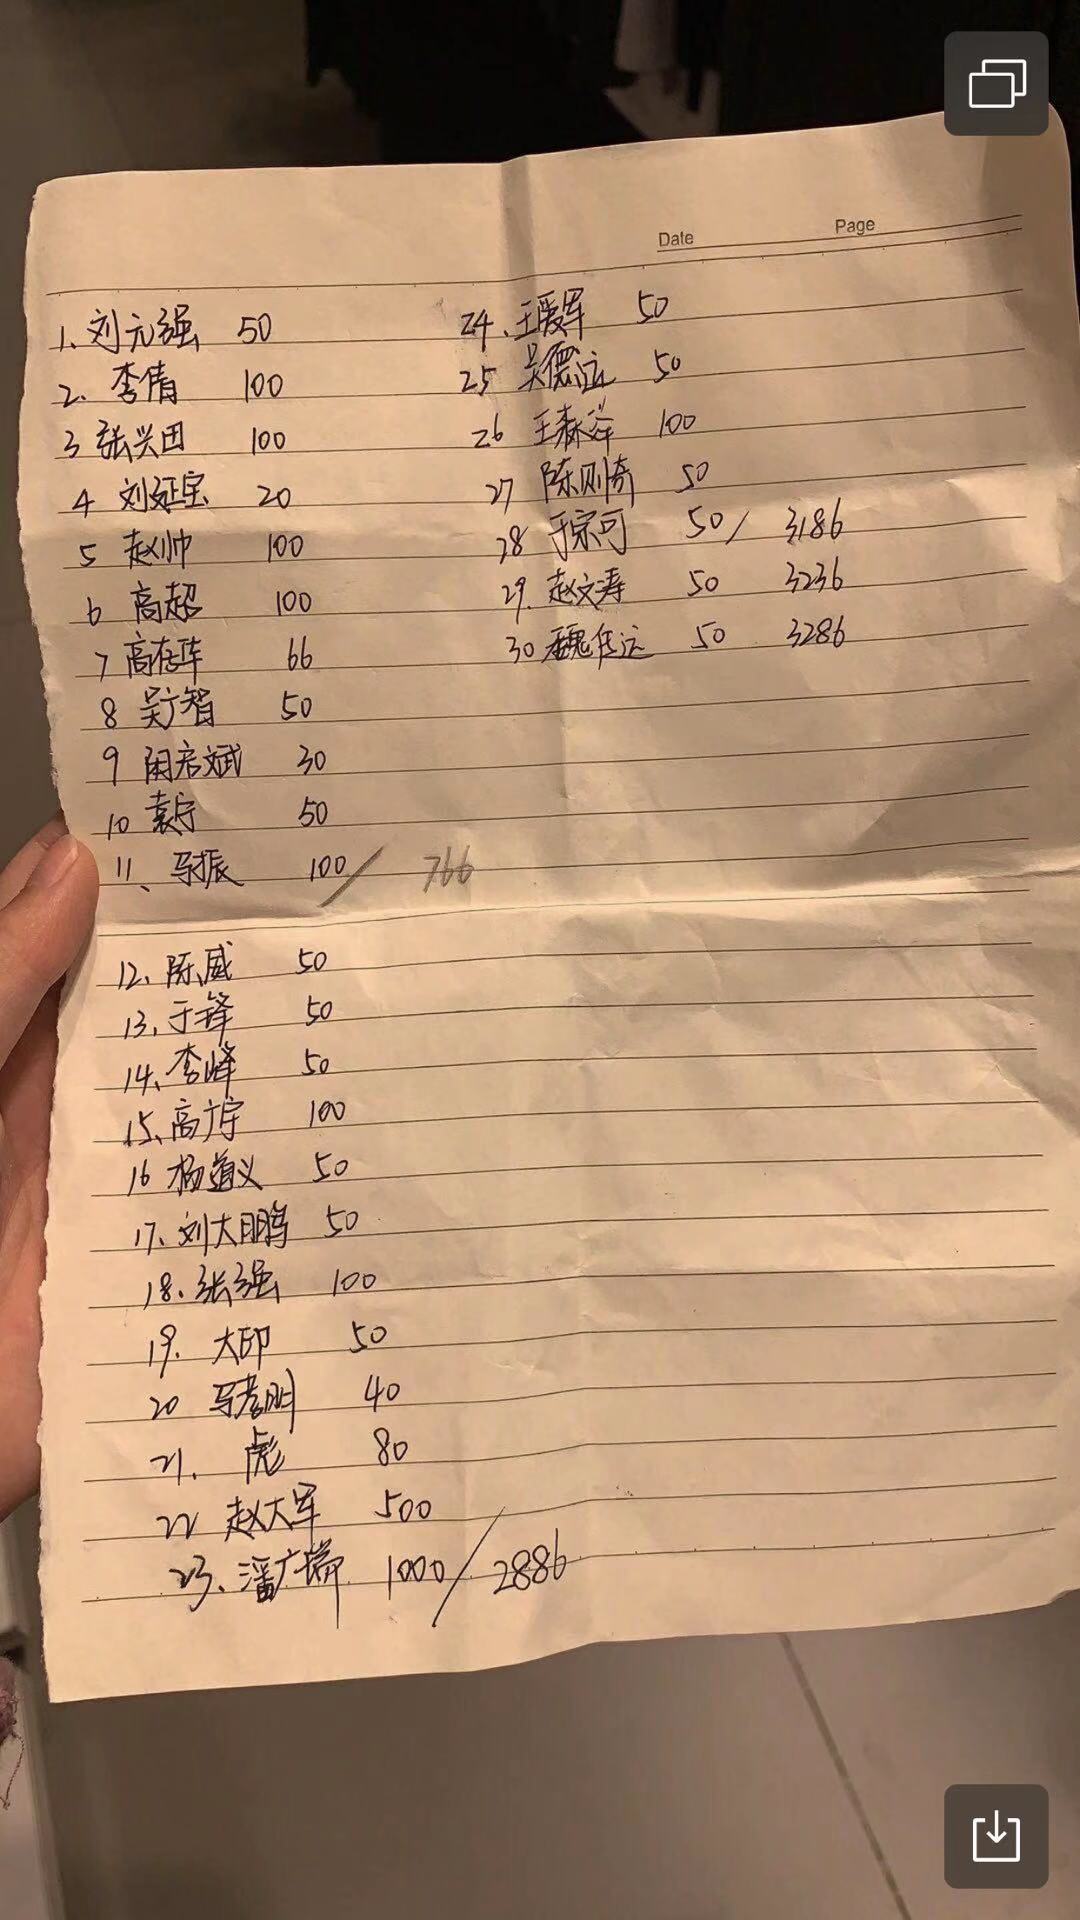 Date Page
1、刘元强 50
2、李倩 100
3 张兴田 100
4 刘延宝 20
5 赵帅 100
6 高超 100
7 高存军 66
8 吴广智 50
9 闫启斌 30
10 袁宁 50
11、马振 100/ 766
12、陈威 50
13、于锋 50
14、李峰 50
15、高广宇 100
16 杨道义 50
17、刘大鹏 50
18、张强 100
19、大印 50
20 马孝明 40
21、彪 80
22 赵大军 500
23、潘广瑞 1000/2886
24、王爱军 50
25 吴德运 50
26 王森 100
27 陈则奇 50
28 于宗可 50/ 3186
29、赵文涛 50 3236
30 魏传运 50 3286